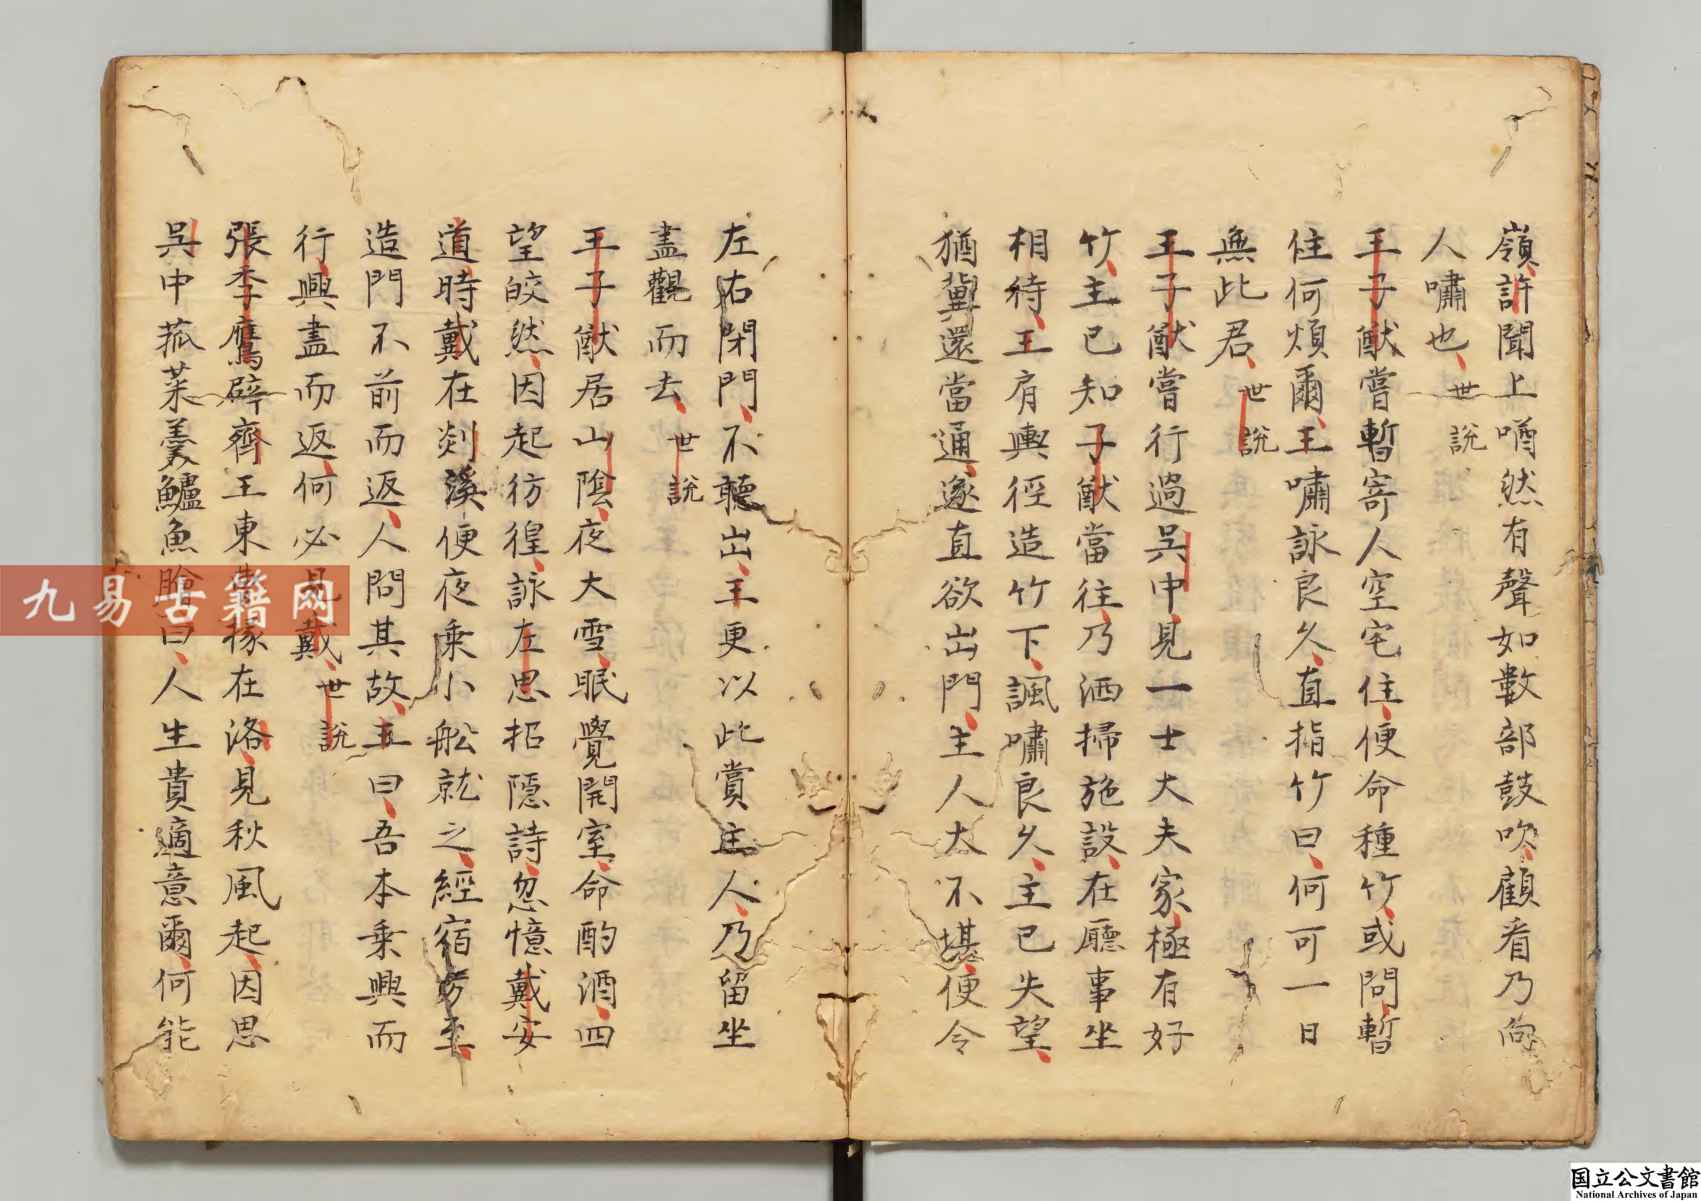 嶺許聞上噂然有聲如數部鼓吹顧看乃向
人嘯也世說
王子猷嘗暫寄人空宅住便命種竹或問暫
住何煩爾王嘯詠良久直指竹曰何可一日
無此君世說
王子猷嘗行過吳中見一士大夫家極有好
竹主已知子猷當往乃洒掃施設在廳事坐
相待王肩輿徑造竹下諷嘯良久主已失望
猶冀還當通遂直欲出門主人大不堪便令
左右閉門不聽出王更以此賞主人乃留坐
盡觀而去世說
王子猷居山陰夜大雪眠覺開室命酌酒四
望皎然因起彷徨詠左思招隱詩忽憶戴安
道時戴在剡溪便夜乘小舩就之經宿方至
造門不前而返人問其故王曰吾本乘興而
行興盡而返何必見戴世說
張季鷹辟齊王東曹掾在洛見秋風起因思
吳中菰菜羹鱸魚膾曰人生貴適意爾何能
九易古籍网
国立公文書館
National Archives of Japan